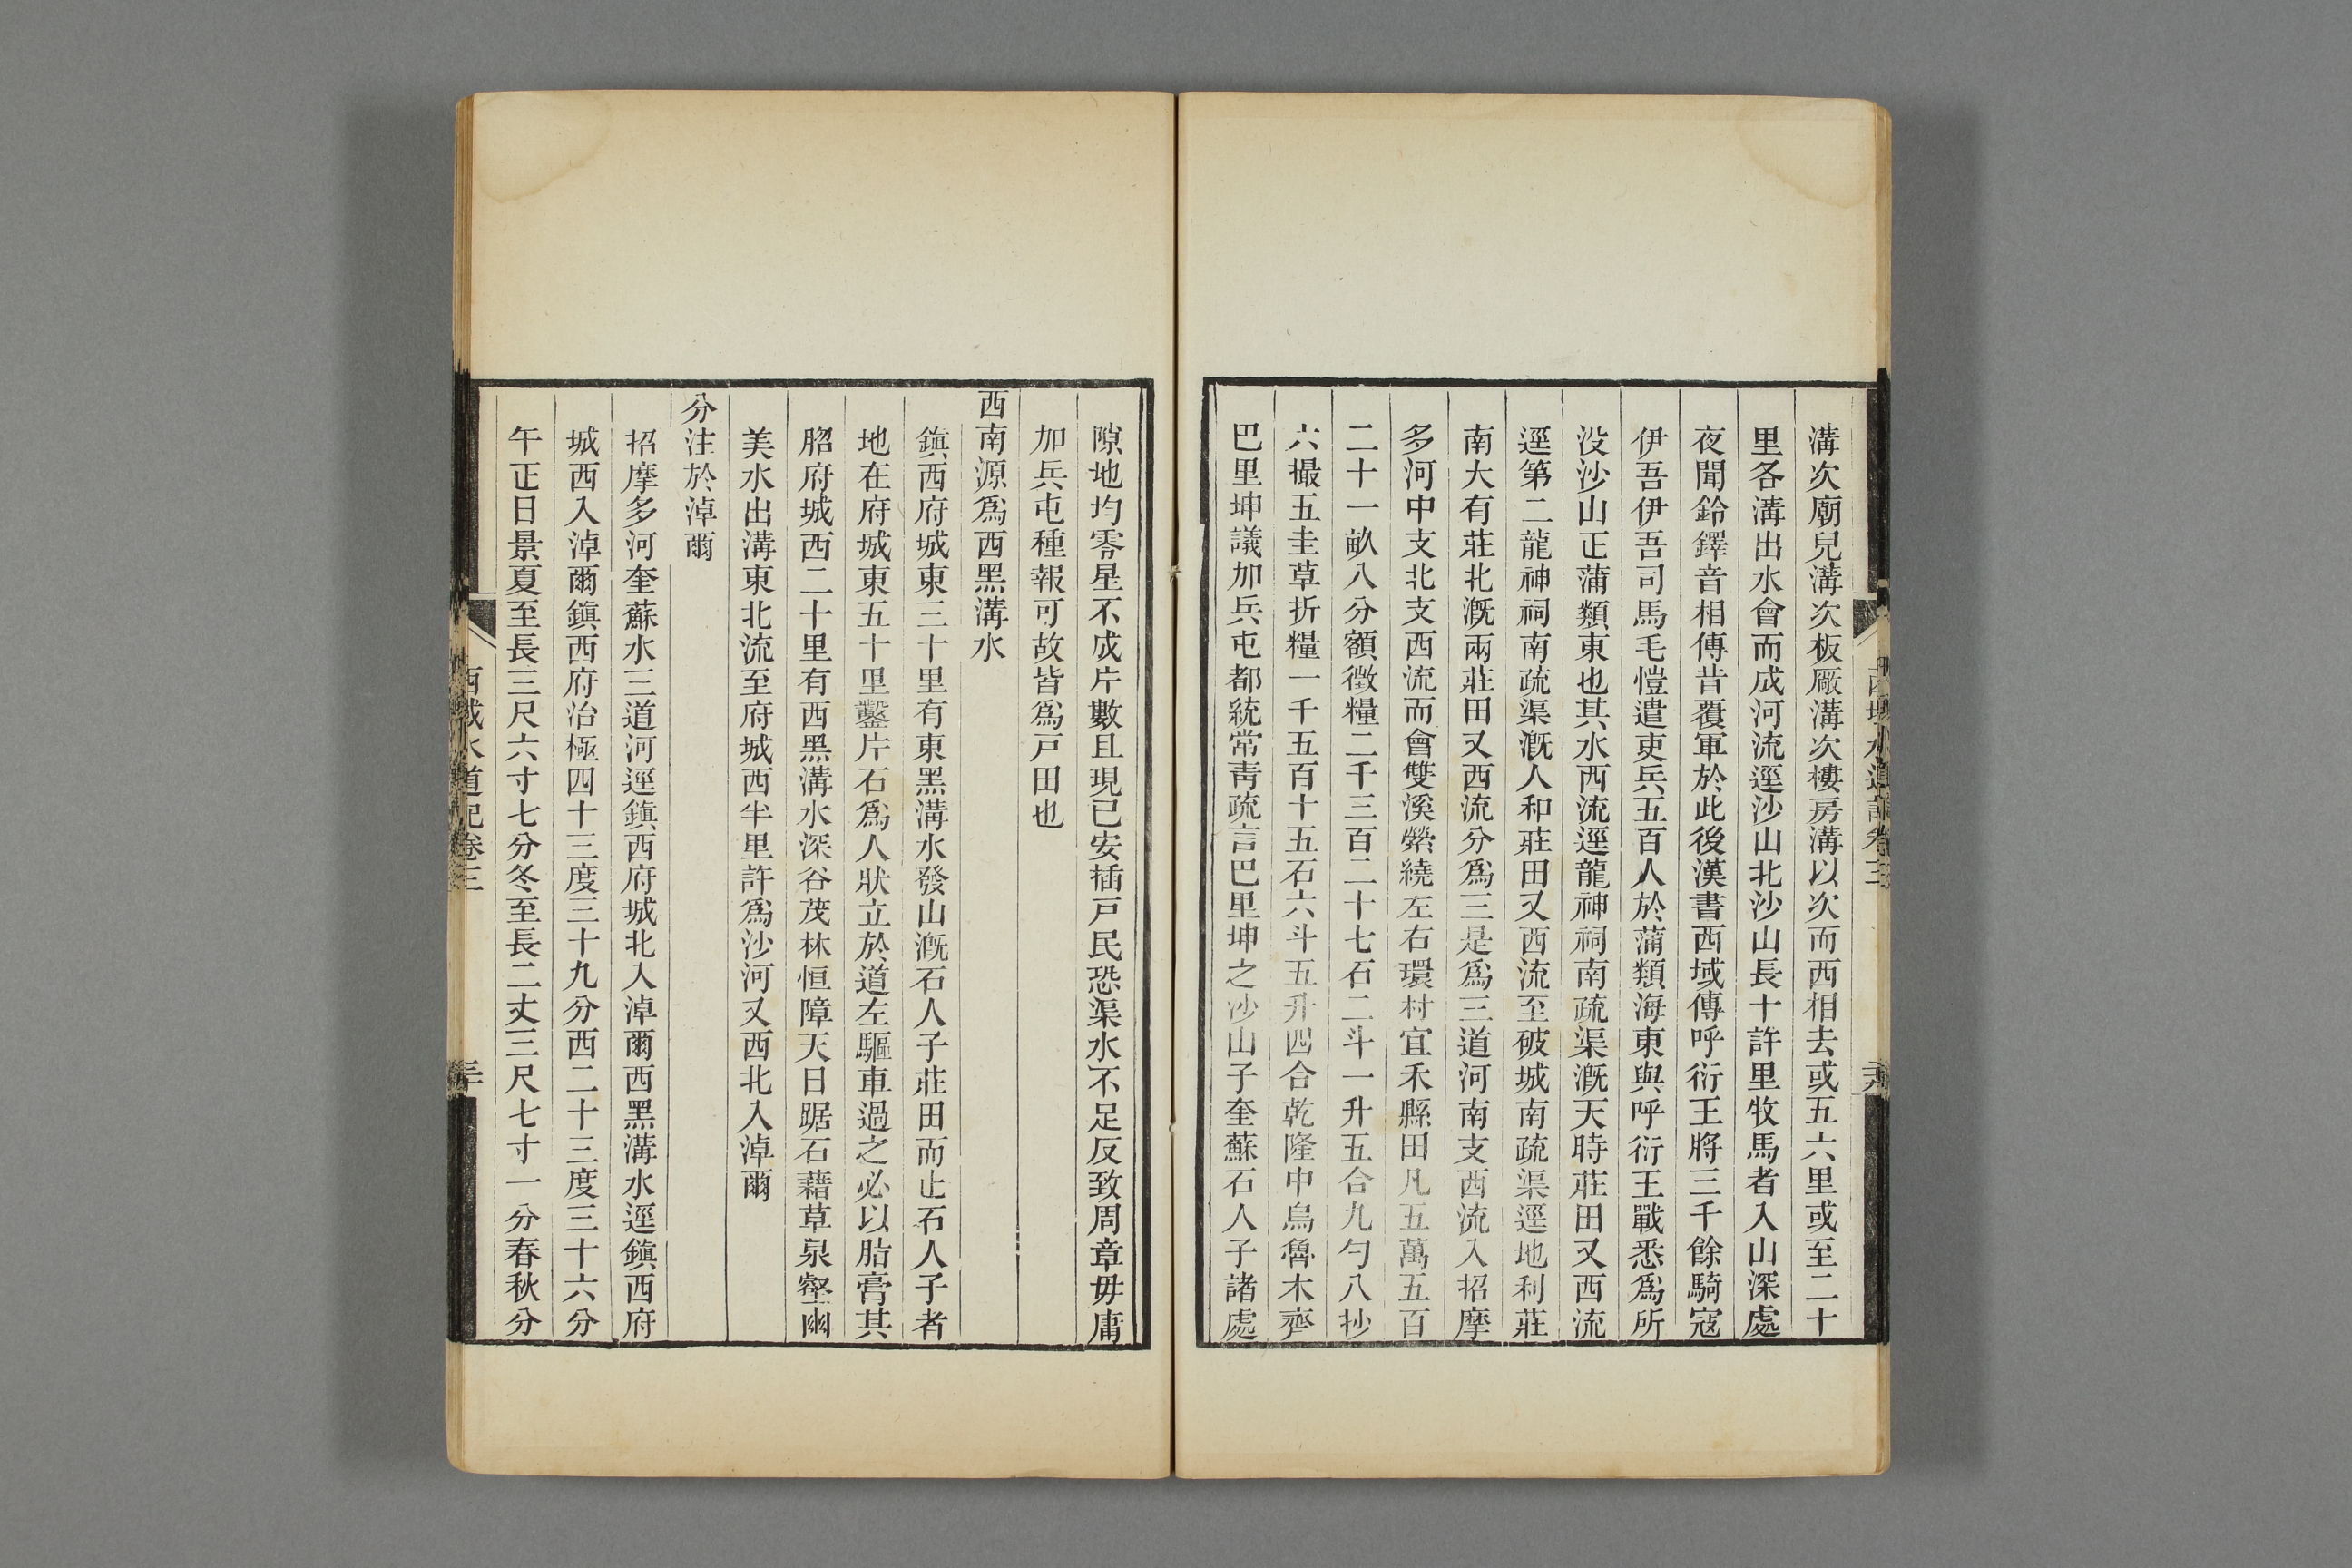 溝次廟兒溝次板厰溝次樓房溝以次而西相去或五六里或至二十
里各溝出水會而成河流逕沙山北沙山長十許里牧馬者入山深處
夜聞鈴鐸音相傳昔覆軍於此後漢書西域傳呼衍王將三千餘騎寇
伊吾伊吾司馬毛愷遣吏兵五百人於蒲類海東與呼衍王戰悉爲所
没沙山正蒲類東也其水西流逕龍神祠南疏渠漑天時莊田又西流
逕第二龍神祠南疏渠漑人和莊田又西流至破城南疏渠逕地利莊
南大有莊北漑兩莊田又西流分爲三是爲三道河南支西流入招摩
多河中支北支西流而會雙溪縈繞左右環村宜禾縣田凡五萬五百
二十一畝八分額徵糧二千三百二十七石二斗一升五合九勺八抄
六撮五圭草折糧一千五百十五石六斗五升四合乾隆中烏魯木齊
巴里坤議加兵屯都統常靑疏言巴里坤之沙山子奎蘇石人子諸處
隙地均零星不成片數且現已安插戸民恐渠水不足反致周章毋庸
加兵屯種報可故皆爲戸田也
西南源爲西黑溝水
鎭西府城東三十里有東黑溝水發山漑石人子莊田而止石人子者
地在府城東五十里鑿片石爲人狀立於道左驅車過之必以脂膏其
䏚府城西二十里有西黑溝水深谷茂林恒障天日踞石藉草泉壑幽
美水出溝東北流至府城西半里許爲沙河又西北入淖爾
分注於淖爾
招摩多河奎蘇水三道河逕鎭西府城北入淖爾西黑溝水逕鎭西府
城西入淖爾鎭西府治極四十三度三十九分西二十三度三十六分
午正日景夏至長三尺六寸七分冬至長二丈三尺七寸一分春秋分
西域水道記卷三
三十